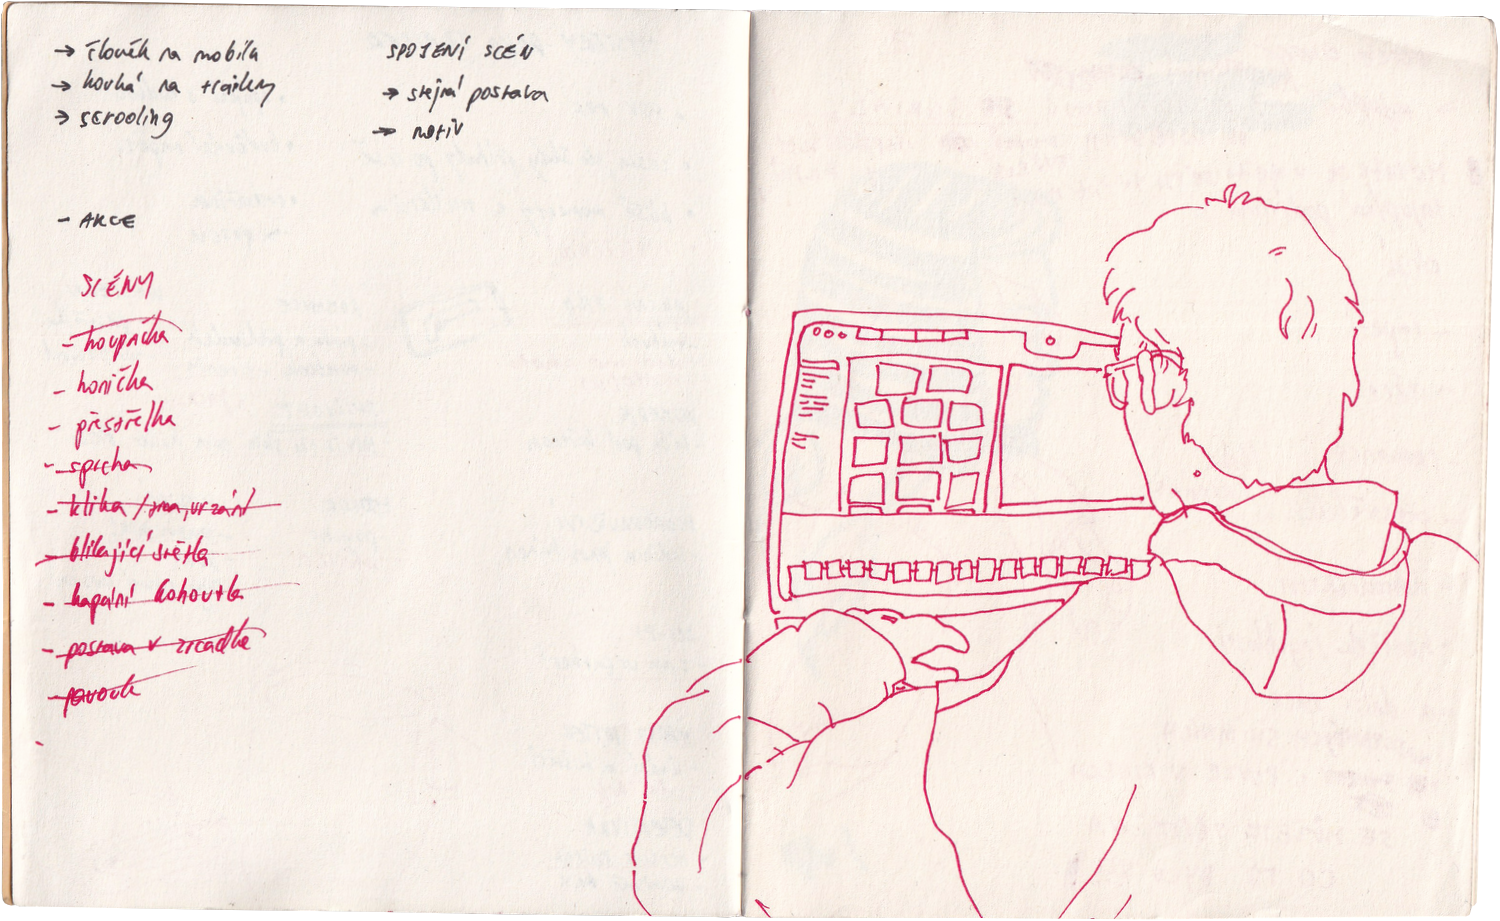 → člověk na mobilu
→ kouká na trailery
→ scrooling
SPOJENÍ SCÉN
→ stejná postava
→ motiv
- AKCE
SCÉNY
- houpačka
- honička
- přestřelka
- sprcha
- klika / vrzání
- blikající světla
- kapání kohoutku
- postava v zrcadle
- pavouk